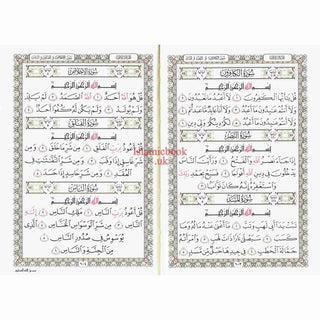 سورة الكافرون
بسم الله الرحمن الرحيم
قل يأيها الكفرون ۝ لا أعبد ما تعبدون ۝
ولا أنتم عبدون ما أعبد ۝ ولا أنا عابد ما عبدتم ۝
ولا أنتم عبدون ما أعبد ۝ لكم دينكم ولي دين ۝
سورة النصر
بسم الله الرحمن الرحيم
إذا جاء نصر الله والفتح ۝ ورأيت الناس
يدخلون في دين الله أفواجا ۝ فسبح بحمد ربك
واستغفره إنه كان توابا ۝
سورة المسد
بسم الله الرحمن الرحيم
تبت يدا أبي لهب وتب ۝ ما أغنى عنه ماله وما
كسب ۝ سيصلى نارا ذات لهب ۝ وامرأته
حمالة الحطب ۝ في جيدها حبل من مسد ۝
سورة الإخلاص
بسم الله الرحمن الرحيم
قل هو الله أحد ۝ الله الصمد ۝ لم يلد
ولم يولد ۝ ولم يكن له كفوا أحد ۝
سورة الفلق
بسم الله الرحمن الرحيم
قل أعوذ برب الفلق ۝ من شر ما خلق ۝ ومن
شر غاسق إذا وقب ۝ ومن شر النفثت في
العقد ۝ ومن شر حاسد إذا حسد ۝
سورة الناس
بسم الله الرحمن الرحيم
قل أعوذ برب الناس ۝ ملك الناس ۝ إله
الناس ۝ من شر الوسواس الخناس ۝ الذي
يوسوس في صدور الناس ۝
من الجنة والناس ۝
Islamicbook
.uk